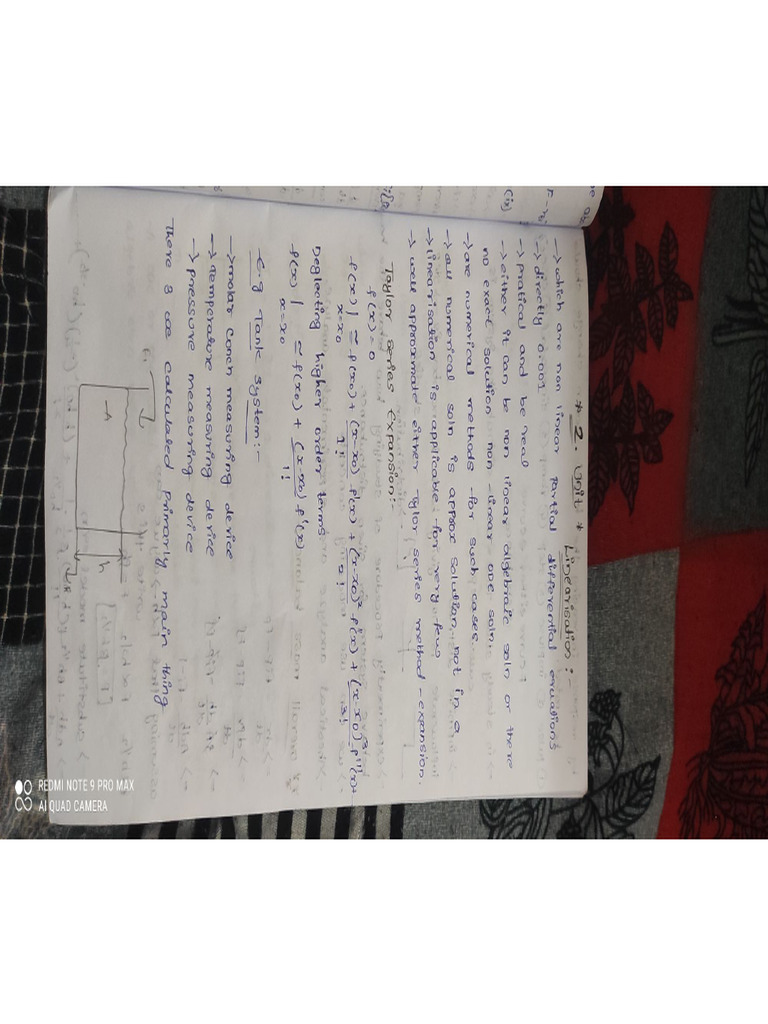 * 2. Unit *
Linearisation :-
→ which are non linear partial differential equations
→ directly 0.001
→ pratical and be real
→ either it can be non linear algebraic soln or there
no exact solution non-linear ODE soln.
→ are numerical methods - for such cases.
→ all numerical soln is approx solution, not in a
→ linearisation is applicable for very few
→ well approximate either Taylor series method - expansion.
Taylor series Expansion:-
f(x) = 0
f(x) | ≅ f(x0) + (x-x0) f'(x) + (x-x0)² f''(x) + (x-x0)³ f'''(x)+
x=x0 1! 2! 3!
Neglecting higher order terms
f(x) | ≅ f(x0) + (x-x0) f'(x)
x=x0 1!
E.g Tank System:-
→ molar concn measuring device
→ temperature measuring device
→ pressure measuring device
There 3 are calculated primarly main thing
Fi
A
h
REDMI NOTE 9 PRO MAX
AI QUAD CAMERA